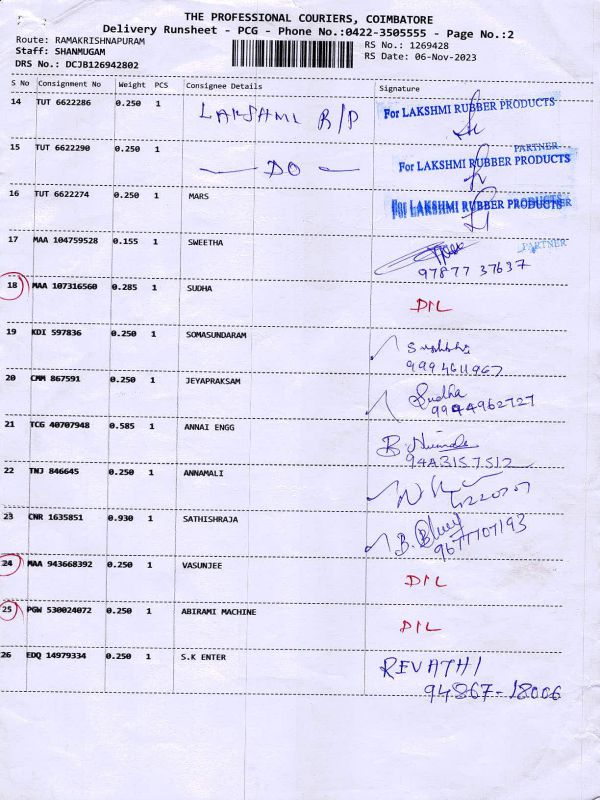 THE PROFESSIONAL COURIERS, COIMBATORE
Delivery Runsheet - PCG - Phone No.:0422-3505555 - Page No.:2
Route: RAMAKRISHNAPURAM RS No.: 1269428
Staff: SHANMUGAM RS Date: 06-Nov-2023
DRS No.: DCJB126942802
S No Consignment No Weight PCS Consignee Details Signature
14 TUT 6622286 0.250 1 LAKSHMI R/P For LAKSHMI RUBBER PRODUCTS
PARTNER
15 TUT 6622290 0.250 1 — DO — For LAKSHMI RUBBER PRODUCTS
16 TUT 6622274 0.250 1 MARS For LAKSHMI RUBBER PRODUCTS
17 MAA 104759528 0.155 1 SWEETHA PARTNER
97877 37637
18 MAA 107316560 0.285 1 SUDHA DIL
19 KDI 597836 0.250 1 SOMASUNDARAM
9994611967
20 CMM 867591 0.250 1 JEYAPRAKSAM Sudha
9944962727
21 TCG 40707948 0.585 1 ANNAI ENGG B.
22 TNJ 846645 0.250 1 ANNAMALI
23 CNR 1635851 0.930 1 SATHISHRAJA B.
9677707193
24 MAA 943668392 0.250 1 VASUNJEE DIL
25 PGW 530024072 0.250 1 ABIRAMI MACHINE DIL
26 EDQ 14979334 0.250 1 S.K ENTER REVATHI
94867-18006